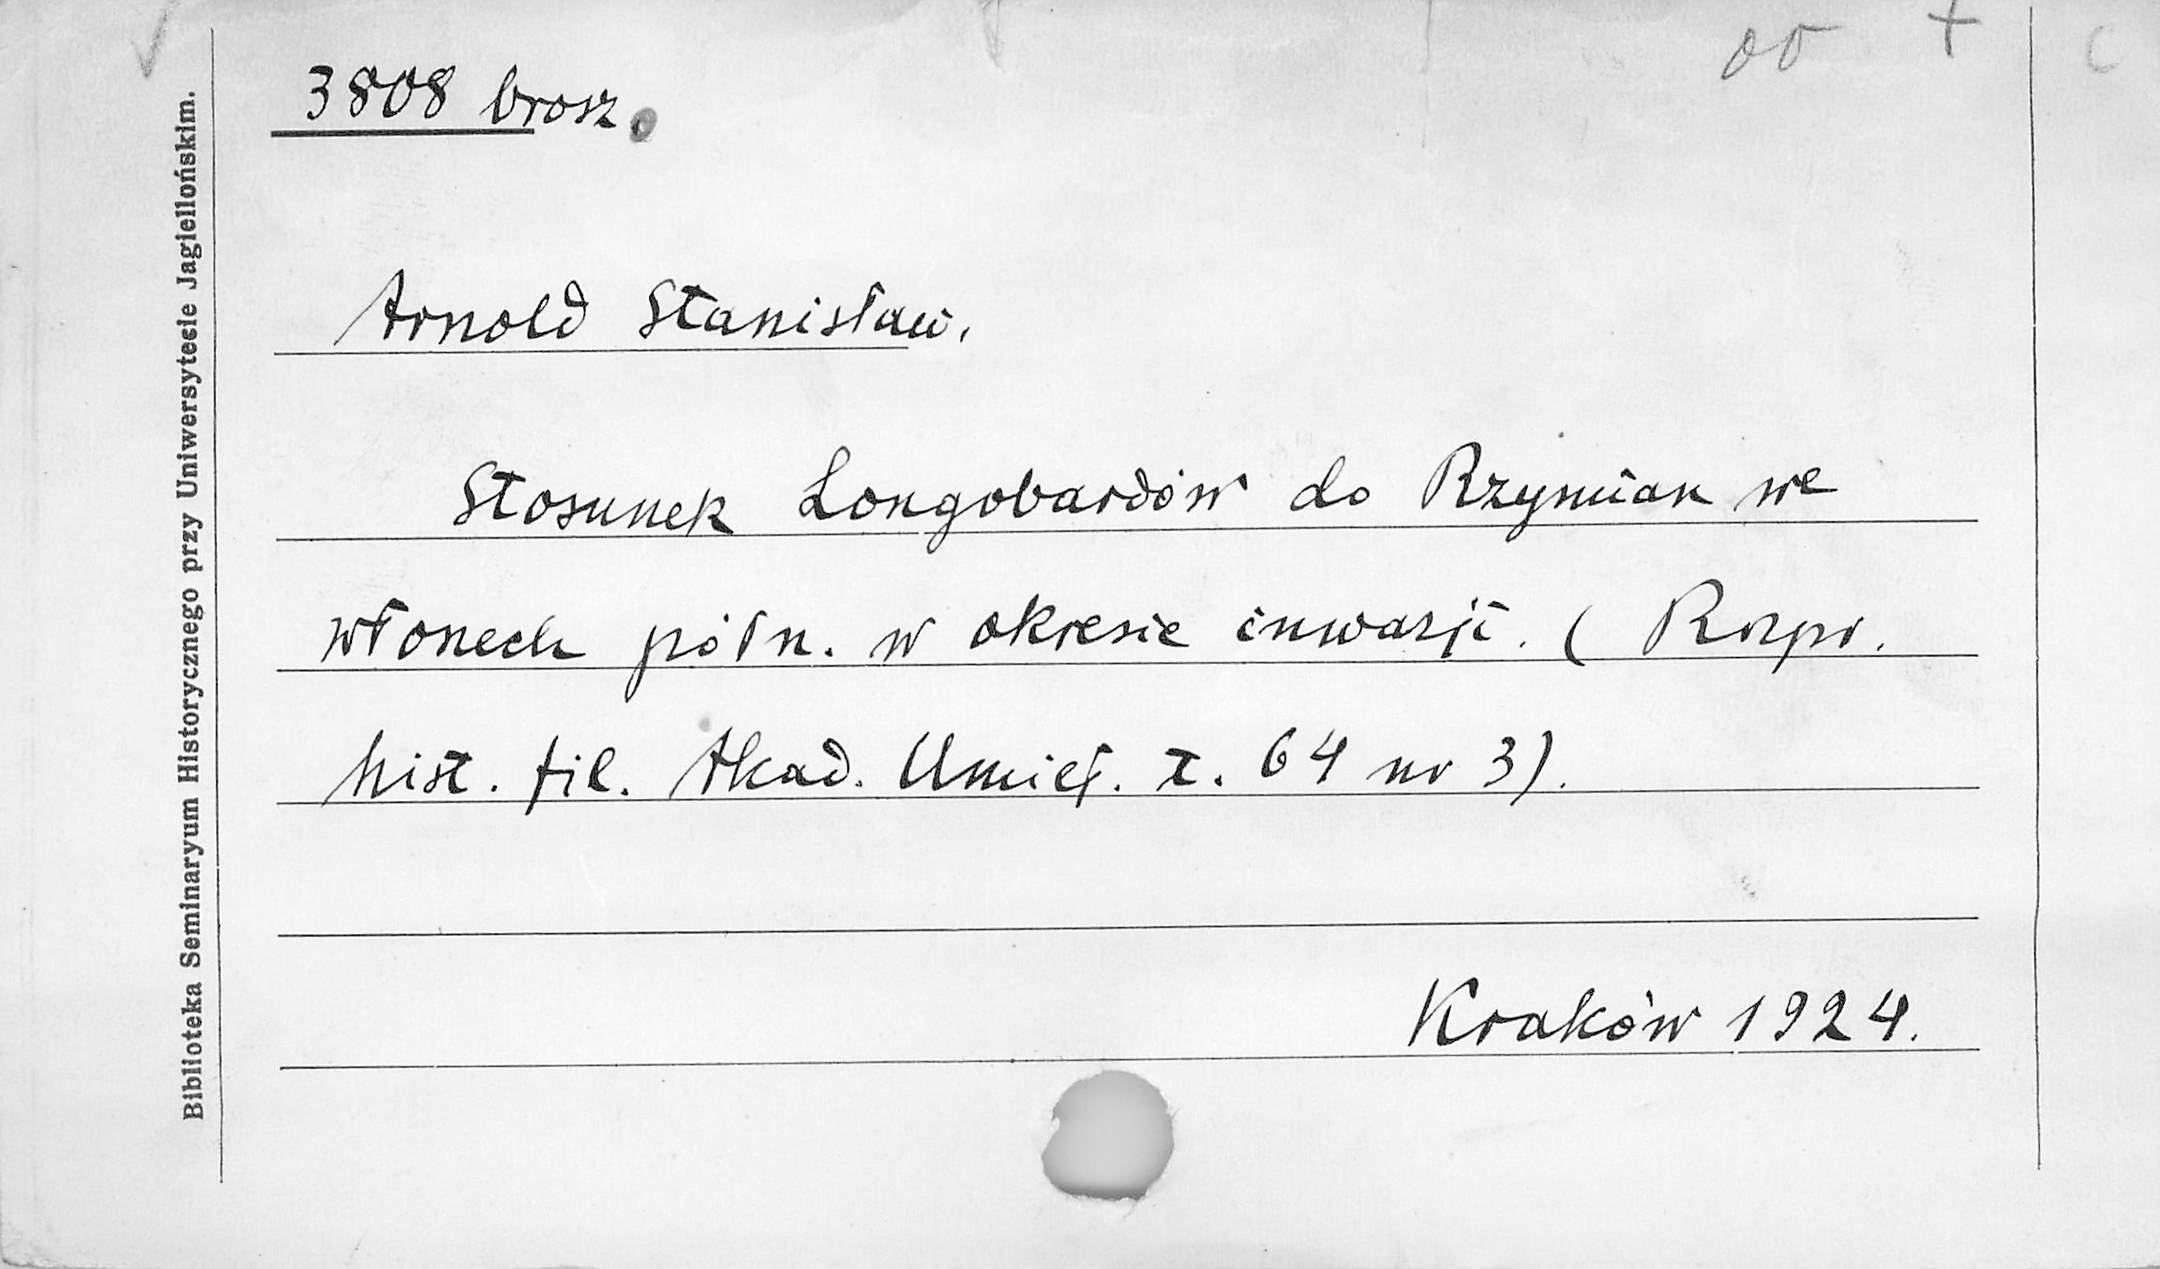 3808 brosz.
Arnold Stanisław.
Stosunek Longobardów do Rzymian we
włoszech półn. w okresie inwazji. (Rozpr.
hist. fil. Akad. Umiej. t. 64 nr 3).
Kraków 1924.
Biblioteka Seminaryum Historycznego przy Uniwersytecie Jagiellońskim.